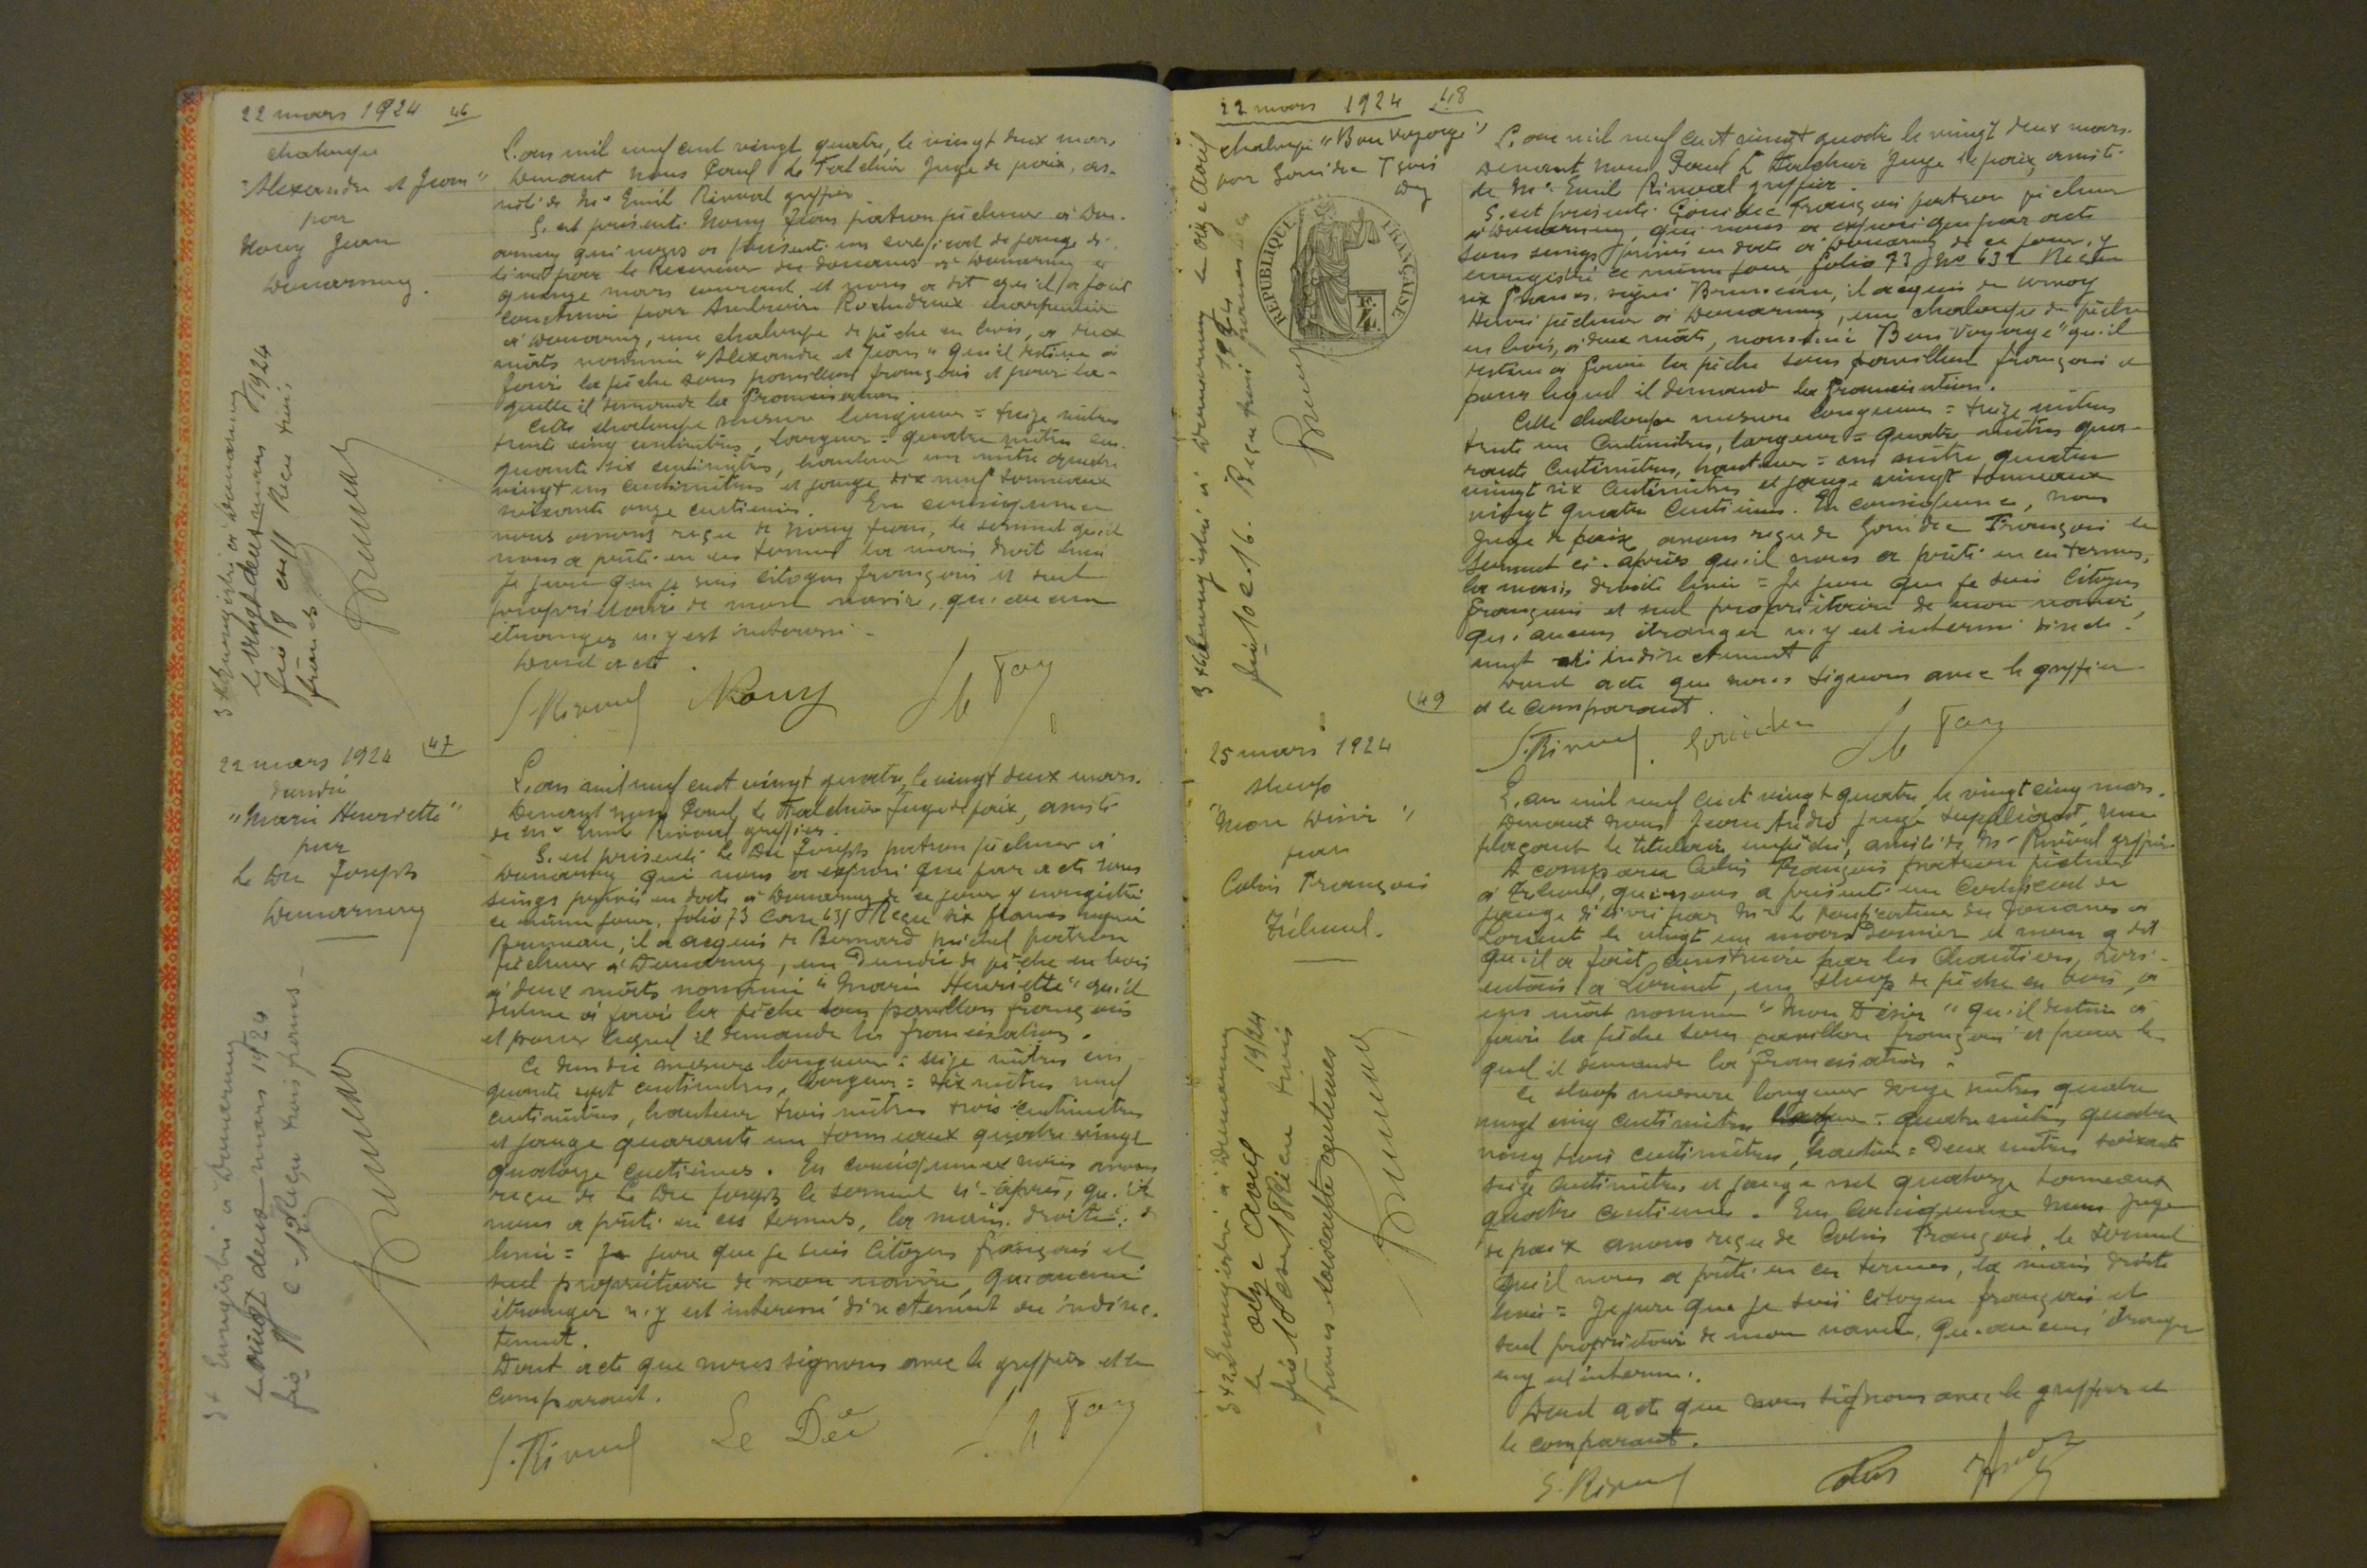 22 mars 1924 46
chaloupe
"Alexandre et Jean"
par
Nouy Jean
Douarnenez.
L'an mil neuf cent vingt quatre, le vingt deux mars,
Devant nous Paul Le Juge de paix, as-
sisté de Me Emile Rivoal greffier
S'est présenté Nouy Jean patron pêcheur à Dou-
arnenez qui nous a présenté un certificat de jauge dé-
livré par le Receveur des douanes de Douarnenez le
quinze mars courant et nous a dit qu'il a fait
construire par charpentier
à Douarnenez, une chaloupe de pêche en bois, à deux
mâts nommée "Alexandre et Jean" qu'il destine à
faire la pêche sous pavillon français et pour la-
quelle il demande la francisation.
Cette chaloupe mesure longueur = treize mètres
trente cinq centimètres, largeur = quatre mètres cin-
quante six centimètres, hauteur un mètre quatre
vingt un centimètres et jauge dix neuf tonneaux
soixante onze centièmes. En conséquence
nous avons reçu de Nouy Jean, le serment qu'il
nous a prêté en ces termes la main droite levée
Je jure que je suis citoyen français et seul
propriétaire de mon navire, qu'aucun
étranger n'y est intéressé -
Dont acte.
E. Rivoal Nouy
3 + Enregistré à Douarnenez
le vingt deux mars 1924
fio 18 case 11 Reçu trois
francs
Bruneau
22 mars 1924 47
dundée
"Marie Henriette"
par
Le Dée Joseph
Douarnenez
L'an mil neuf cent vingt quatre, le vingt deux mars.
Devant nous Paul Le Juge de paix, assisté
de Me Emile Rivoal greffier.
S'est présenté Le Dée Joseph patron pêcheur à
Douarnenez qui nous a exposé que par acte sous
seings privés en date à Douarnenez de ce jour y enregistré
ce même jour, folio 73 Case 631 Reçu six francs signé
Bruneau, il a acquis de Bernard Michel patron
pêcheur à Douarnenez, un Dundée de pêche en bois
à deux mâts nommé "Marie Henriette" qu'il
destine à faire la pêche sous pavillon français
et pour lequel il demande la francisation.
Ce dundée mesure longueur = seize mètres cin-
quante sept centimètres, largeur = six mètres neuf
centimètres, hauteur trois mètres trois centimètres
et jauge quarante un tonneaux quatre vingt
quatorze centièmes. En conséquence nous avons
reçu de Le Dée Joseph le serment ci-après, qu'il
nous a prêté en ces termes, la main droite
levée = Je jure que je suis citoyen français et
seul propriétaire de mon navire, qu'aucun
étranger n'y est intéressé directement ou indirec-
tement.
Dont acte que nous signons avec le greffier et le
comparant.
E. Rivoal Le Dée
3 + Enregistré à Douarnenez
le vingt deux mars 1924
fio 18 c Reçu trois francs -
Bruneau
22 mars 1924 48
chaloupe "Bon Voyage"
par Gouidec Fçois
Dz
REPUBLIQUE FRANÇAISE
L'an mil neuf cent vingt quatre le vingt deux mars.
Devant nous Paul Le Juge de paix, assisté
de Me Emile Rivoal greffier.
S'est présenté Gouidec François patron pêcheur
à Douarnenez, qui nous a exposé que par acte
sous seings privés en date à Douarnenez de ce jour, y
enregistré ce même jour folio 73 No 632 Reçu
six francs, signé Bruneau, il a acquis de
Henri pêcheur à Douarnenez, une chaloupe de pêche
en bois, à deux mâts, nommée "Bon Voyage" qu'il
destine à faire la pêche sous pavillon français et
pour lequel il demande la francisation.
Cette chaloupe mesure longueur = treize mètres
trente un centimètres, largeur = quatre mètres qua-
rante centimètres, hauteur = un mètre quatre
vingt six centimètres et jauge vingt tonneaux
vingt quatre centièmes. En conséquence, nous
Juge de paix avons reçu de Gouidec François le
serment ci-après qu'il nous a prêté en ces termes,
la main droite levée = Je jure que je suis citoyen
français et seul propriétaire de mon navire,
qu'aucun étranger n'y est intéressé directe-
ment ni indirectement.
Dont acte que nous signons avec le greffier
et le comparant.
E. Rivoal. Gouidec
3 + Enregistré à Douarnenez le onze avril
1924
fio 10 c. 16. Reçu trois francs
Bruneau
49
25 mars 1924
sloop
"Mon Désir"
par
Colin François
Trébeul.
L'an mil neuf cent vingt quatre, le vingt cinq mars.
Devant nous Jean André juge suppléant, rem-
plaçant le titulaire empêché, assisté de Me Rivoal greffier
A comparu Colin François patron pêcheur
à Tréboul, qui nous a présenté un certificat de
jauge délivré par Mr Le vérificateur des Douanes à
Lorient le vingt un mars dernier et nous a dit
qu'il a fait construire par les Chantiers Lori-
entais à Lorient, un sloop de pêche en bois, à
un mât nommé "Mon Désir" qu'il destine à
faire la pêche sous pavillon français et pour le-
quel il demande la francisation.
Ce sloop mesure longueur douze mètres quatre
vingt cinq centimètres = quatre mètres quatre
vingt trois centimètres, hauteur = Deux mètres soixante
seize centimètres et jauge net quatorze tonneaux
quatre centièmes. En conséquence nous juge
de paix avons reçu de Colin François, le serment
qu'il nous a prêté en ces termes, la main droite
levée = Je jure que je suis citoyen français et
seul propriétaire de mon navire, qu'aucun étranger
n'y est intéressé.
Dont acte que nous signons avec le greffier et
le comparant.
E. Rivoal Colin
342 Enregistré à Douarnenez
le onze avril 1924
fio 10 case 18 Reçu trois
francs soixante centimes
Bruneau